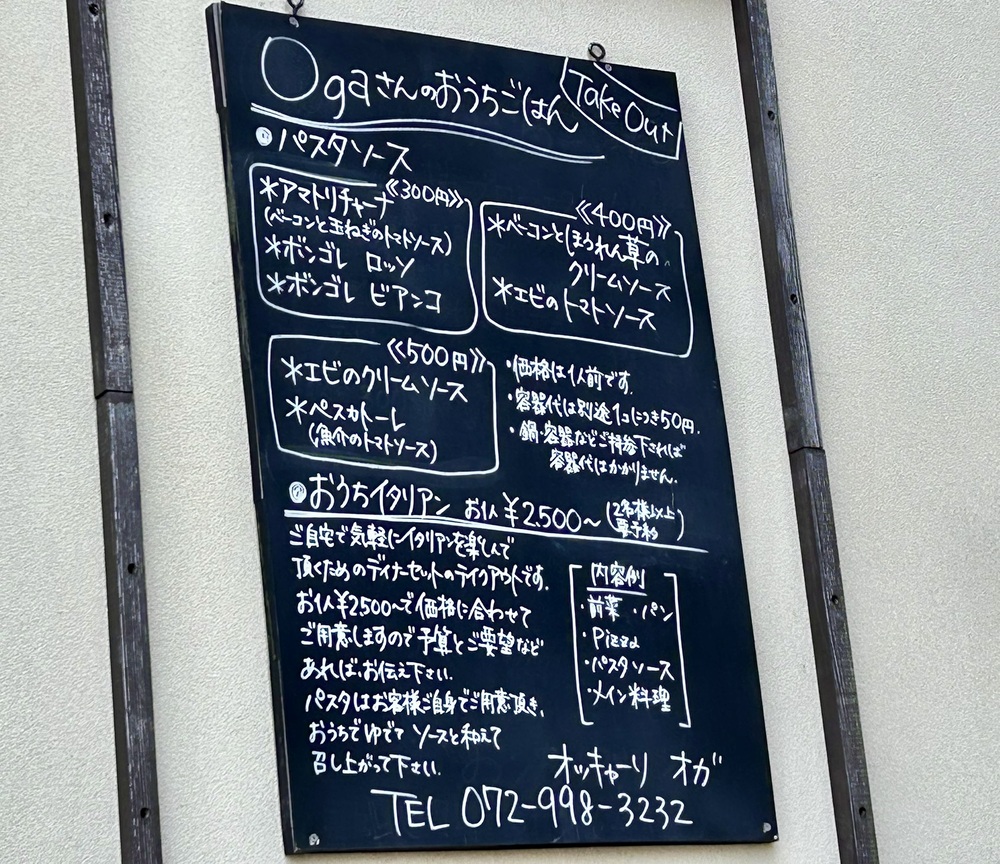 Ogaさんのおうちごはん
Take Out
パスタソース
《300円》
*アマトリチャーナ
(ベーコンと玉ねぎのトマトソース)
*ボンゴレ ロッソ
*ボンゴレ ビアンコ
《400円》
*ベーコンとほうれん草の
クリームソース
*エビのトマトソース
《500円》
*エビのクリームソース
*ペスカトーレ
(魚介のトマトソース)
・価格は1人前です。
・容器代は別途1コにつき50円。
・鍋・容器などご持参下されば
容器代はかかりません。
おうちイタリアン お1人¥2.500~(2名様以上 要予約)
ご自宅で気軽にイタリアンを楽しんで
頂くためのディナーセットのテイクアウトです。
お1人¥2500~で価格に合わせて
ご用意しますので予算とご要望など
あれば、お伝え下さい。
パスタはお客様ご自身でご用意頂き、
おうちでゆでて ソースと和えて
召し上がって下さい。
内容例
・前菜 ・パン
・Pizza
・パスタソース
・メイン料理
オッキャーリ オガ
TEL 072-998-3232